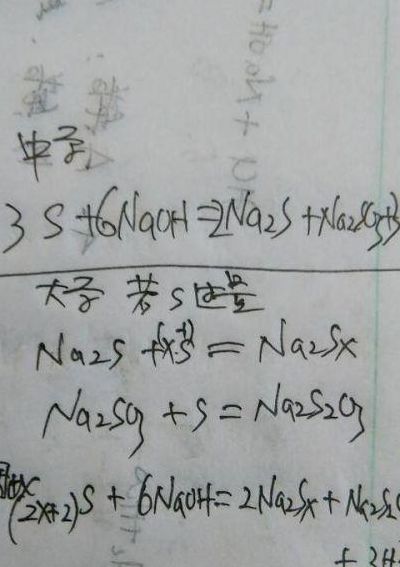 中学
3S+6NaOH=2Na2S+Na2SO3+3
大学 若S过量
Na2S+(x-1)S=Na2Sx
Na2SO3+S=Na2S2O3
(2x+2)S+6NaOH=2Na2Sx+Na2S2O
+3H